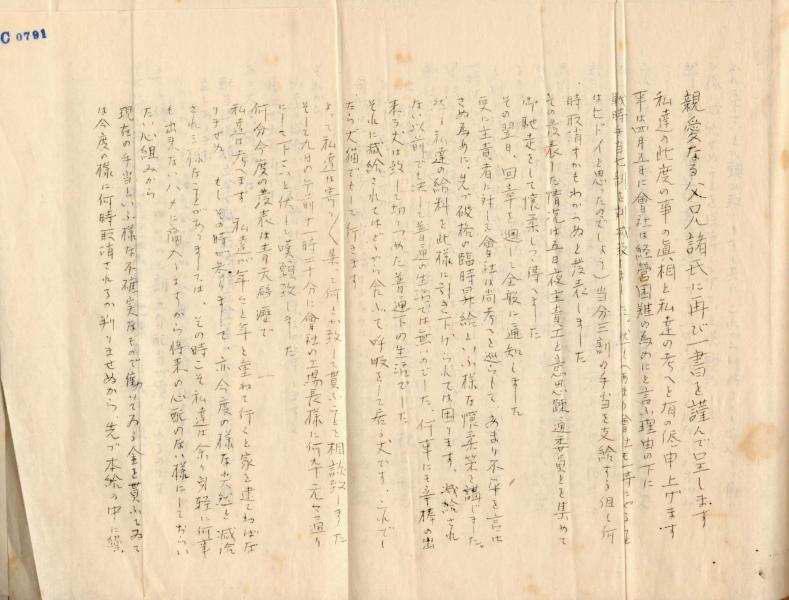 C 0791
親愛なる父兄諸氏に再び一書を謹んで呈します
私達の此度の事の真相と私達の考へを有の侭申上げます
事は四月五日に會社は経営困難の為めにと言ふ理由の下に
戦時手当七割を
はヒドイと思ったのでしよう)当分三割の手当を支給する但し何
時取消すかもわからぬと発表しました
その発表した情況は五日夜主責工と意思疎通委員とを集めて
御馳走をして懐柔しつゝ得々ました
その翌日、回章を廻して全般に通知しました
更に主責者に対して會社は尚考へを巡らして、あまり不平を言は
さぬ為めに、先づ破格の臨時昇給といふ様な懐柔策を講じました。
然し私達の給料を此様に引き下げられては困ります、減給され
ない以前でも決して普通の生活では無いのでした、何事にも辛棒の出
来る丈は致して切りつめた普通下の生活でした
それに減給されてはどこから食ふて呼吸をして居る丈です、これでし
たら犬猫でもして行きます
よって私達は寄り〱集って何とか致して貰ふことを相談致しました
そして九日の午前十一時二十分に會社の工場長様に何卒元々通り
にして下さいと伏して嘆願致しました
何分今度の発表は青天霹靂で
私達は考へます 私達が年々と年を重ねて行くと家を建てねばな
りませぬ、もしその時が参りまして、亦今度の様な突然と減給
される様なことがありましては、その時こそ私達は余り身軽に何事
も出来ないハメに陥入りますから将来の心配のない様にしておらい
たい心組みから
現在の手当といふ様な不確実なもので働いてゐる金を貰ふてゐて
は今度の様に何時取消されるか判りませぬから、先づ本給の中に繰